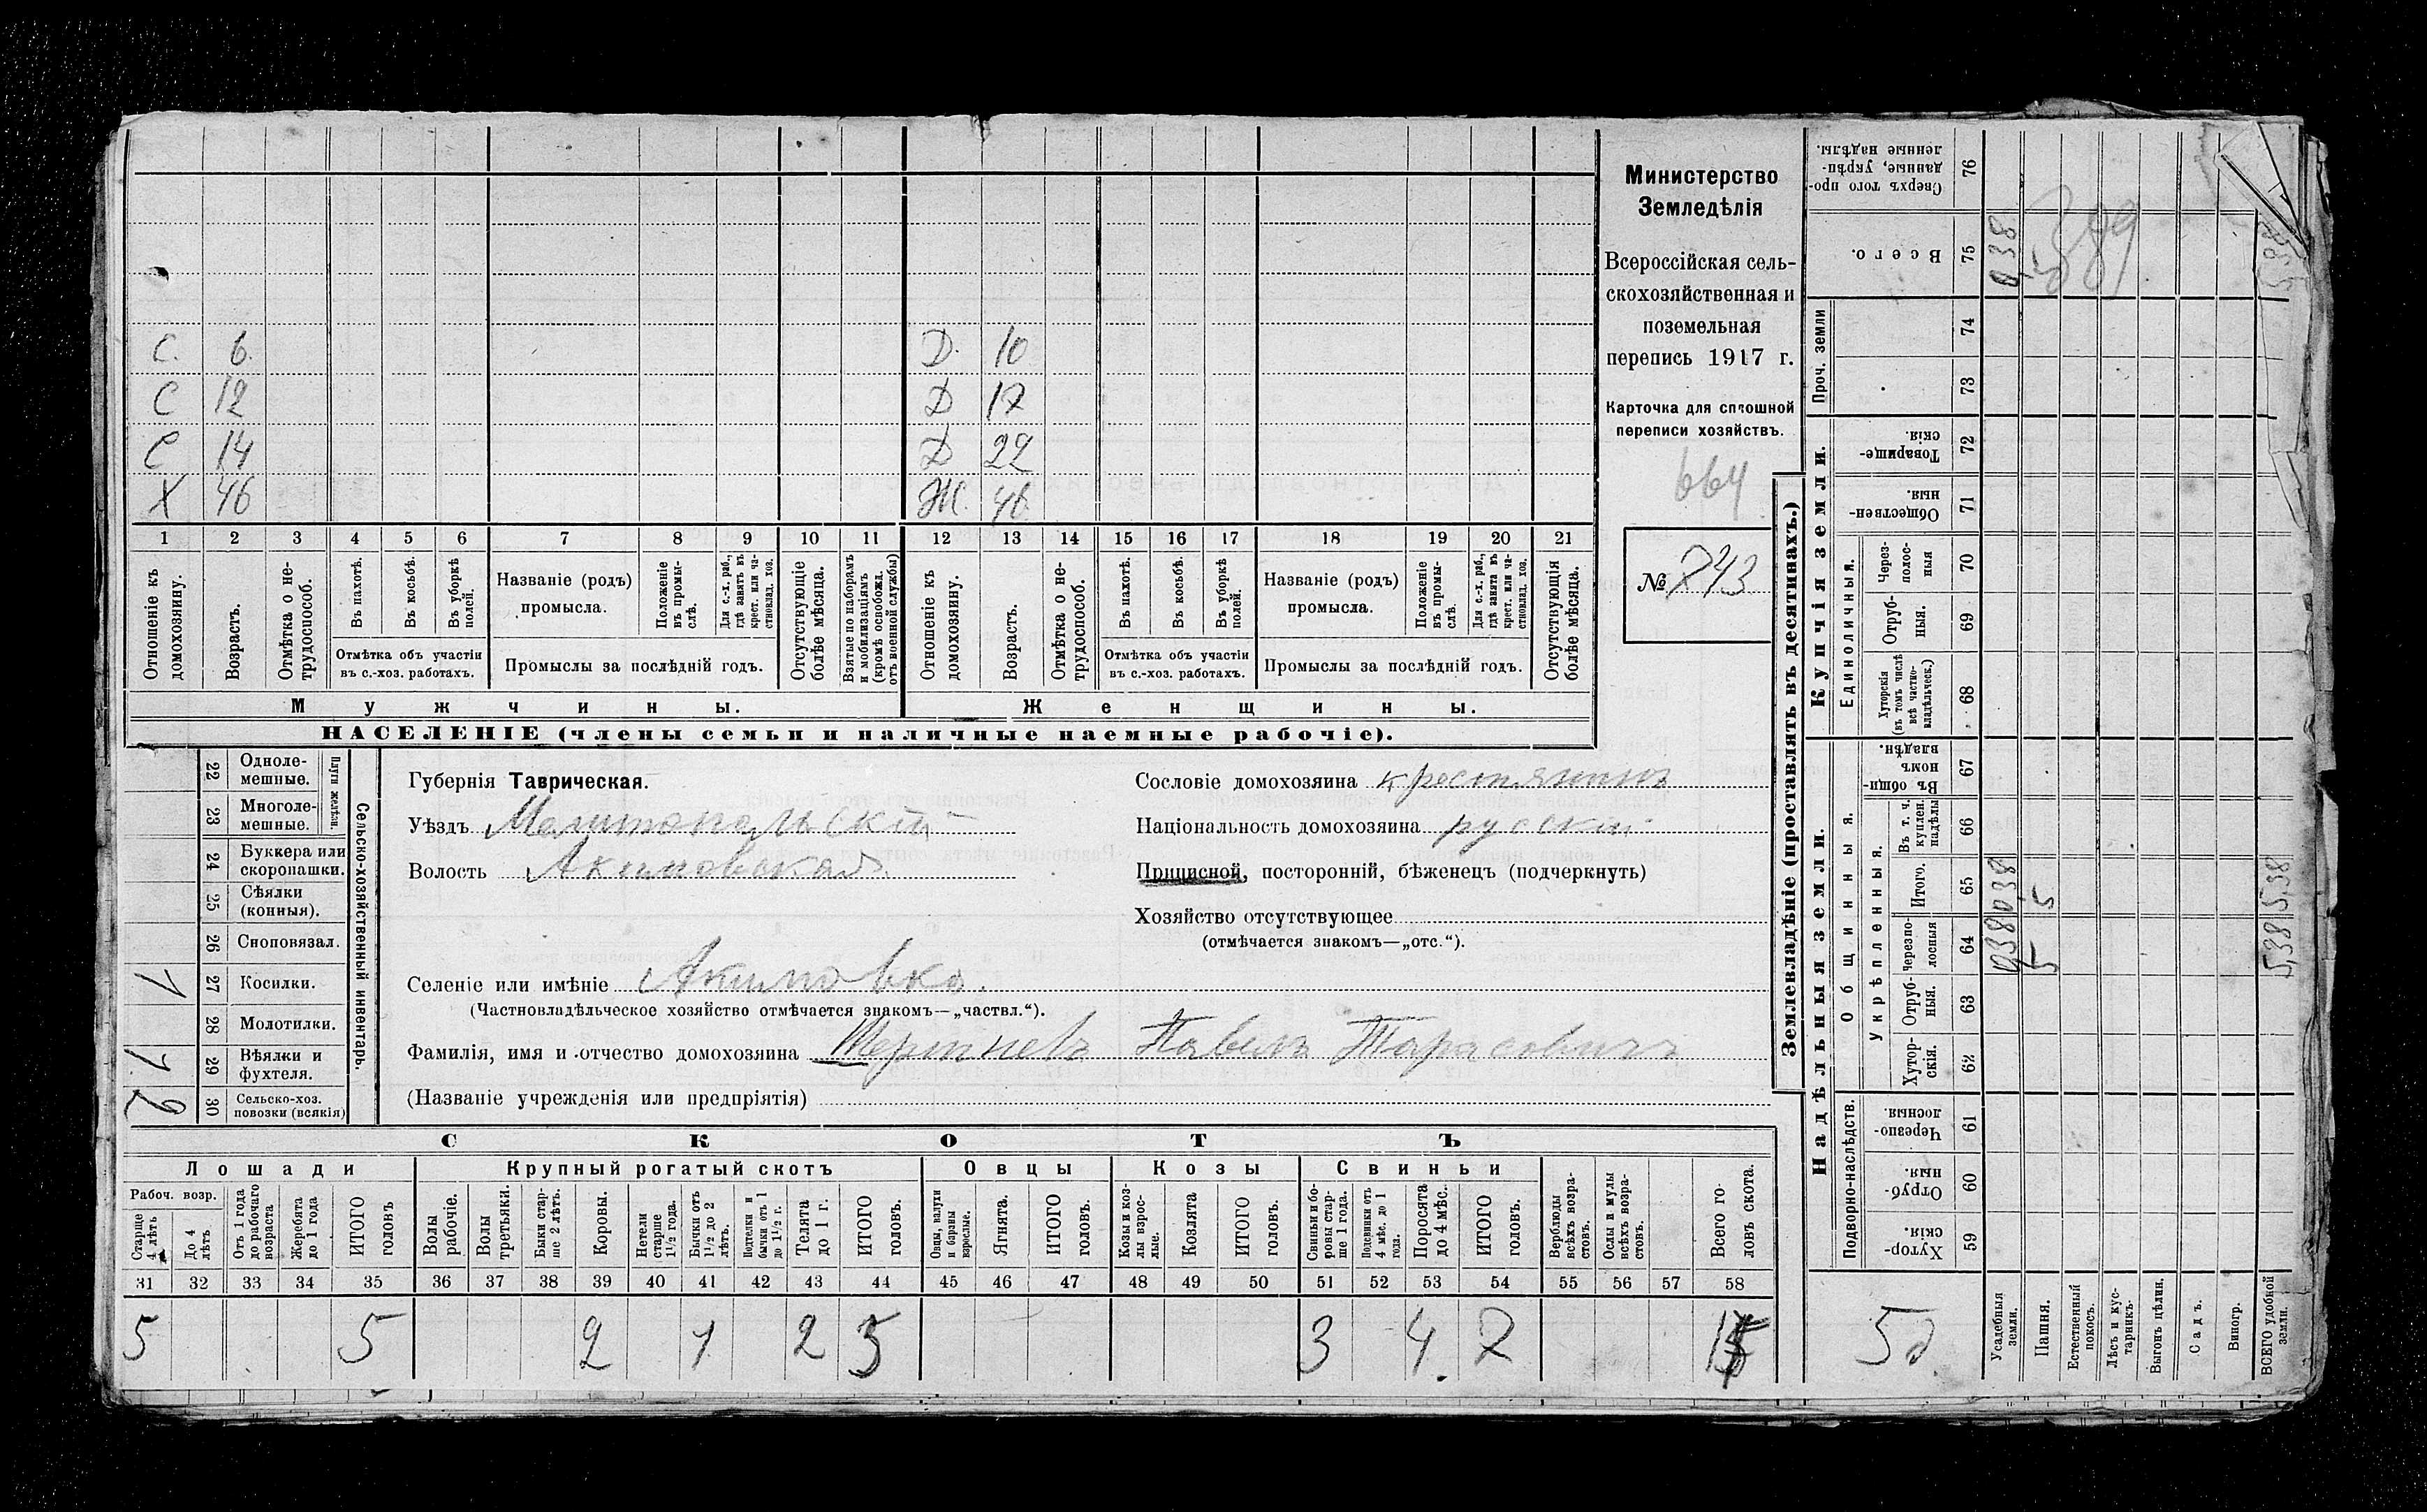 С. 6. Д. 10
С 12 Д 17
С 14 Д 22
Х 46 Ж. 46
1 2 3 4 5 6 7 8 9 10 11 12 13 14 15 16 17 18 19 20 21
Отношеніе къ домохозяину.
Возрастъ.
Отмѣтка о не-
трудоспособ.
Въ пахотѣ.
Въ косьбѣ.
Въ уборкѣ
полей.
Отмѣтка объ участіи
въ с.-хоз. работахъ.
Названіе (родъ)
промысла.
Положеніе
въ промы-
слѣ.
Для с.-х. раб.,
гдѣ занятъ въ
крест. или ча-
стновлад. хоз.
Промыслы за послѣдній годъ.
Отсутствующіе
болѣе мѣсяца.
Взятые по наборамъ
и мобилизаціямъ
(кромѣ освобожд.
отъ военной службы)
Отношеніе къ
домохозяину.
Возрастъ.
Отмѣтка о не-
трудоспособ.
Въ пахотѣ.
Въ косьбѣ.
Въ уборкѣ
полей.
Отмѣтка объ участіи
въ с.-хоз. работахъ.
Названіе (родъ)
промысла.
Положеніе
въ промы-
слѣ.
Для с.-х. раб.,
гдѣ занята въ
крест. или ча-
стновлад. хоз.
Промыслы за послѣдній годъ.
Отсутствующія
болѣе мѣсяца.
Мужчины. Женщины.
НАСЕЛЕНІЕ (члены семьи и наличные наемные рабочіе).
Министерство
Земледѣлія
Всероссійская сель-
скохозяйственная и
поземельная
перепись 1917 г.
Карточка для сплошной
переписи хозяйствъ.
664
№ 743
22 Одноле-
мешные.
23 Многоле-
мешные.
Плуги желѣзн.
24 Буккера или
скоропашки.
25 Сѣялки
(конныя).
26 Сноповязал.
1 27 Косилки.
28 Молотилки.
1 29 Вѣялки и
фухтеля.
2 30 Сельско-хоз.
повозки (всякія)
Сельско-хозяйственный инвентарь.
Губернія Таврическая.
Уѣздъ Мелитопольскій
Волость Акимовская.
Селеніе или имѣніе Акимовка.
(Частновладѣльческое хозяйство отмѣчается знакомъ—„частвл.“).
Фамилія, имя и отчество домохозяина Павелъ Тарасовичъ
(Названіе учрежденія или предпріятія)
Сословіе домохозяина крестьянинъ
Національность домохозяина русскій
Приписной, посторонній, бѣженецъ (подчеркнуть)
Хозяйство отсутствующее
(отмѣчается знакомъ—„отс.“).
СКОТЪ
Лошади Крупный рогатый скотъ Овцы Козы Свиньи
Рабоч. возр.
Старше
4 лѣтъ
До 4
лѣтъ.
Отъ 1 года
до рабочаго
возраста
Жеребята
до 1 года
ИТОГО
головъ
Волы
рабочіе.
Волы
третьяки.
Быки стар-
ше 2 лѣтъ.
Коровы.
Нетели
старше
1½ года.
Бычки отъ
1½ до 2
лѣтъ.
Подтелки и
бычки отъ 1
до 1½ г.
Телята
до 1 г.
ИТОГО
головъ.
Овцы, валухи
и бараны
взрослые.
Ягнята.
ИТОГО
головъ.
Козы и коз-
лы взрос-
лые.
Козлята
ИТОГО
головъ.
Свиньи и бо-
ровы стар-
ше 1 года.
Подсвинки отъ
4 мѣс. до 1
года.
Поросята
до 4 мѣс.
ИТОГО
головъ.
Верблюды
всѣхъ возра-
стовъ.
Ослы и мулы
всѣхъ возра-
стовъ.
Всего го-
ловъ скота.
31 32 33 34 35 36 37 38 39 40 41 42 43 44 45 46 47 48 49 50 51 52 53 54 55 56 57 58
5 5 2 1 2 5 3 4 7
Землевладѣніе (проставлять въ десятинахъ.)
Надѣльныя земли. Купчія земли.
Проч. земли
Общинныя.
Укрѣпленныя.
Единоличныя.
Подворно-наслѣдств.
Сверхъ того про-
данные, укрѣп-
ленные надѣлы.
76
Всего. 75 0,38
74
73
Товарище-
скія. 72
Обществен-
ныя. 71
Через-
полос-
ныя 70
Отруб-
ныя. 69
Хуторскія
(въ томъ числѣ
всѣ частно-
владѣльческ.)
68
Въ общин-
номъ
владѣн.
67
Въ т. ч.
куплен.
надѣлы
66
Итого. 65 0,38 5 5,38
Черезпо-
лосныя 64 0,38 5 5,38
Отруб-
ныя. 63
Хутор-
скія. 62
Черезпо-
лосныя. 61
Отруб-
ныя. 60
Хутор-
скія. 59
5 д.
Усадебныя
земли.
Пашня.
Естественный
покосъ.
Лѣсъ и кус-
тарникъ.
Выгонъ цѣлин.
Садъ.
Виногр.
ВСЕГО удобной
земли.